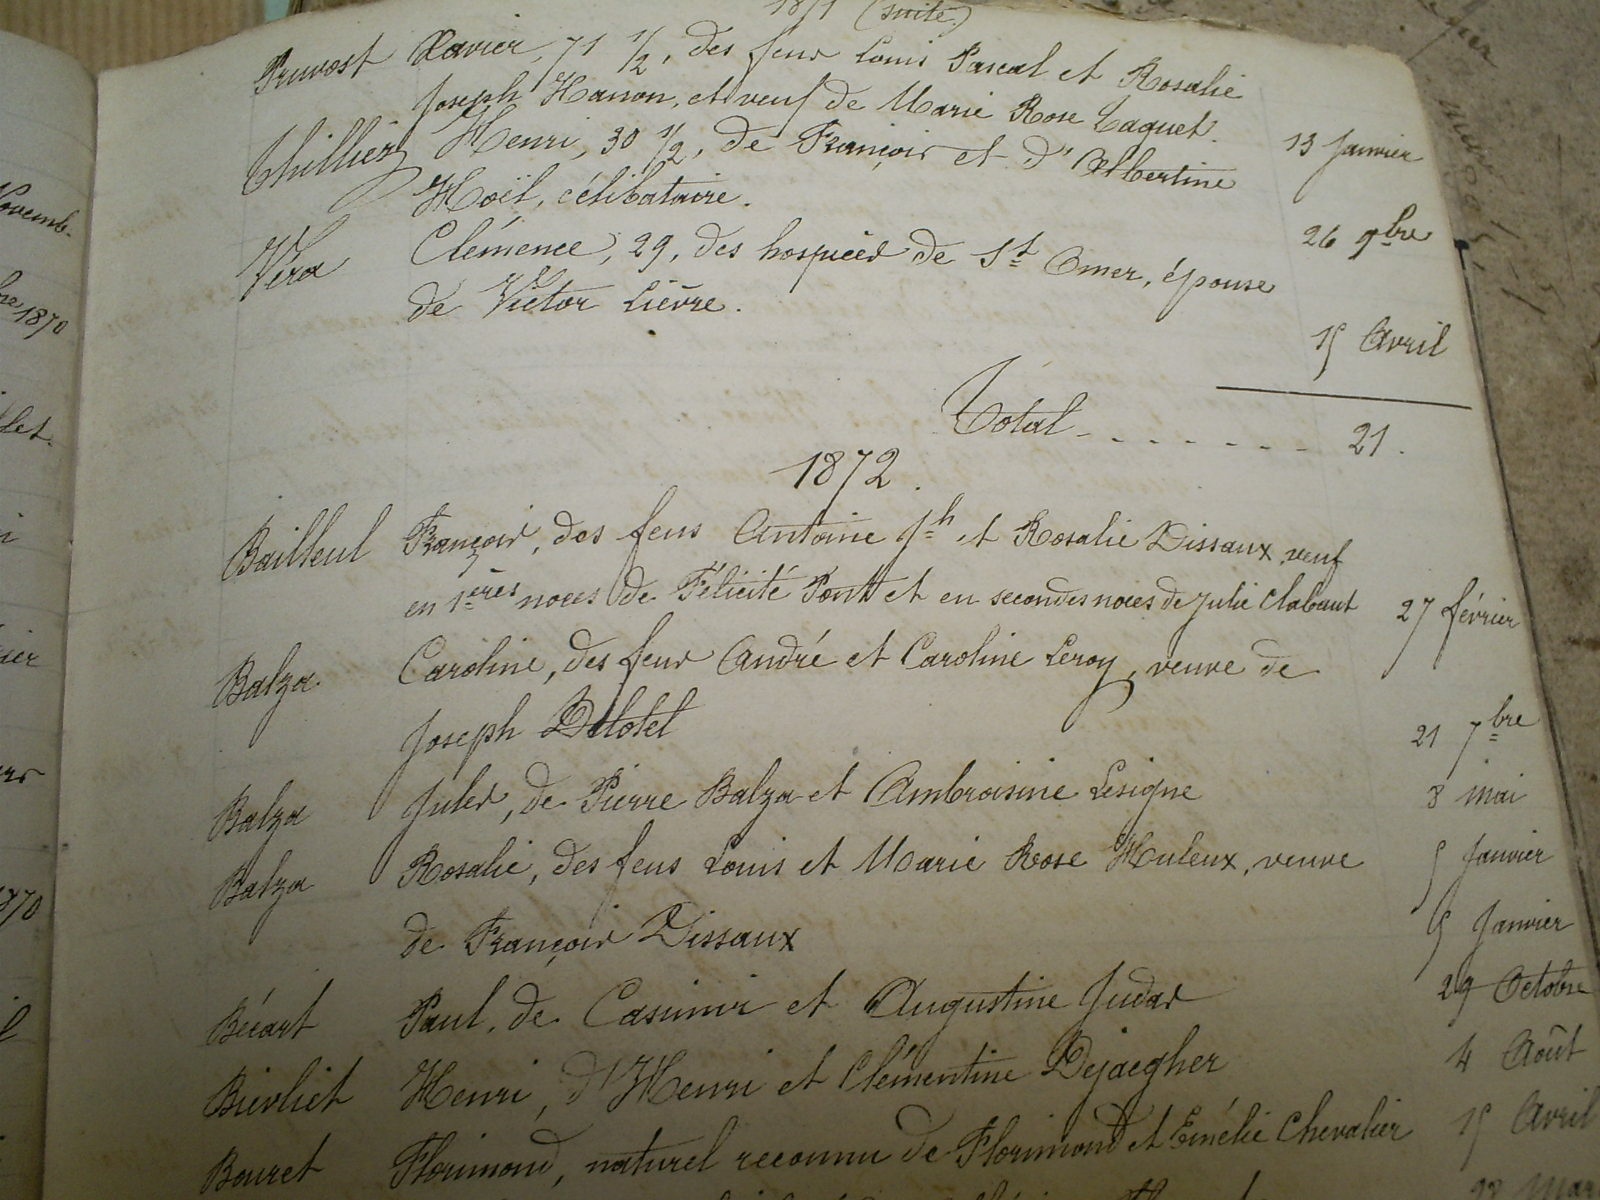 1871 (suite)
Pruvost Xavier, 71 1/2, des feus Louis Pascal et Rosalie
Joseph Hanon, et veuf de Marie Rose Caquet. 13 Janvier
Thilliez Henri, 30 1/2, de François et d'Albertine
Noël, célibataire. 26 9bre
Véra Clémence, 29, des hospices de St Omer, épouse
de Victor Lièvre. 15 Avril
Total - - - - - - - 21.
1872.
Bailleul François, des feus Antoine Jh et Rosalie Dissaux, veuf
en 1ères noces de Félicité Pont et en secondes noces de Julie Clabaut 27 février
Balza Caroline, des feus André et Caroline Leroy, veuve de
Joseph Delotel 21 7bre
Balza Jules, de Pierre Balza et Ambroisine Lesigne 8 mai
Balza Rosalie, des feus Louis et Marie Rose Huleux, veuve 5 Janvier
de François Dissaux 5 Janvier
Bécart Paul, de Casimir et Augustine Judas 29 Octobre
Bievliet Henri, d'Henri et Clémentine Dejaegher 4 Août
Bouret Florimond, naturel reconnu de Florimond et Emélie Chevalier 15 Avril
Novemb.
1870
let.